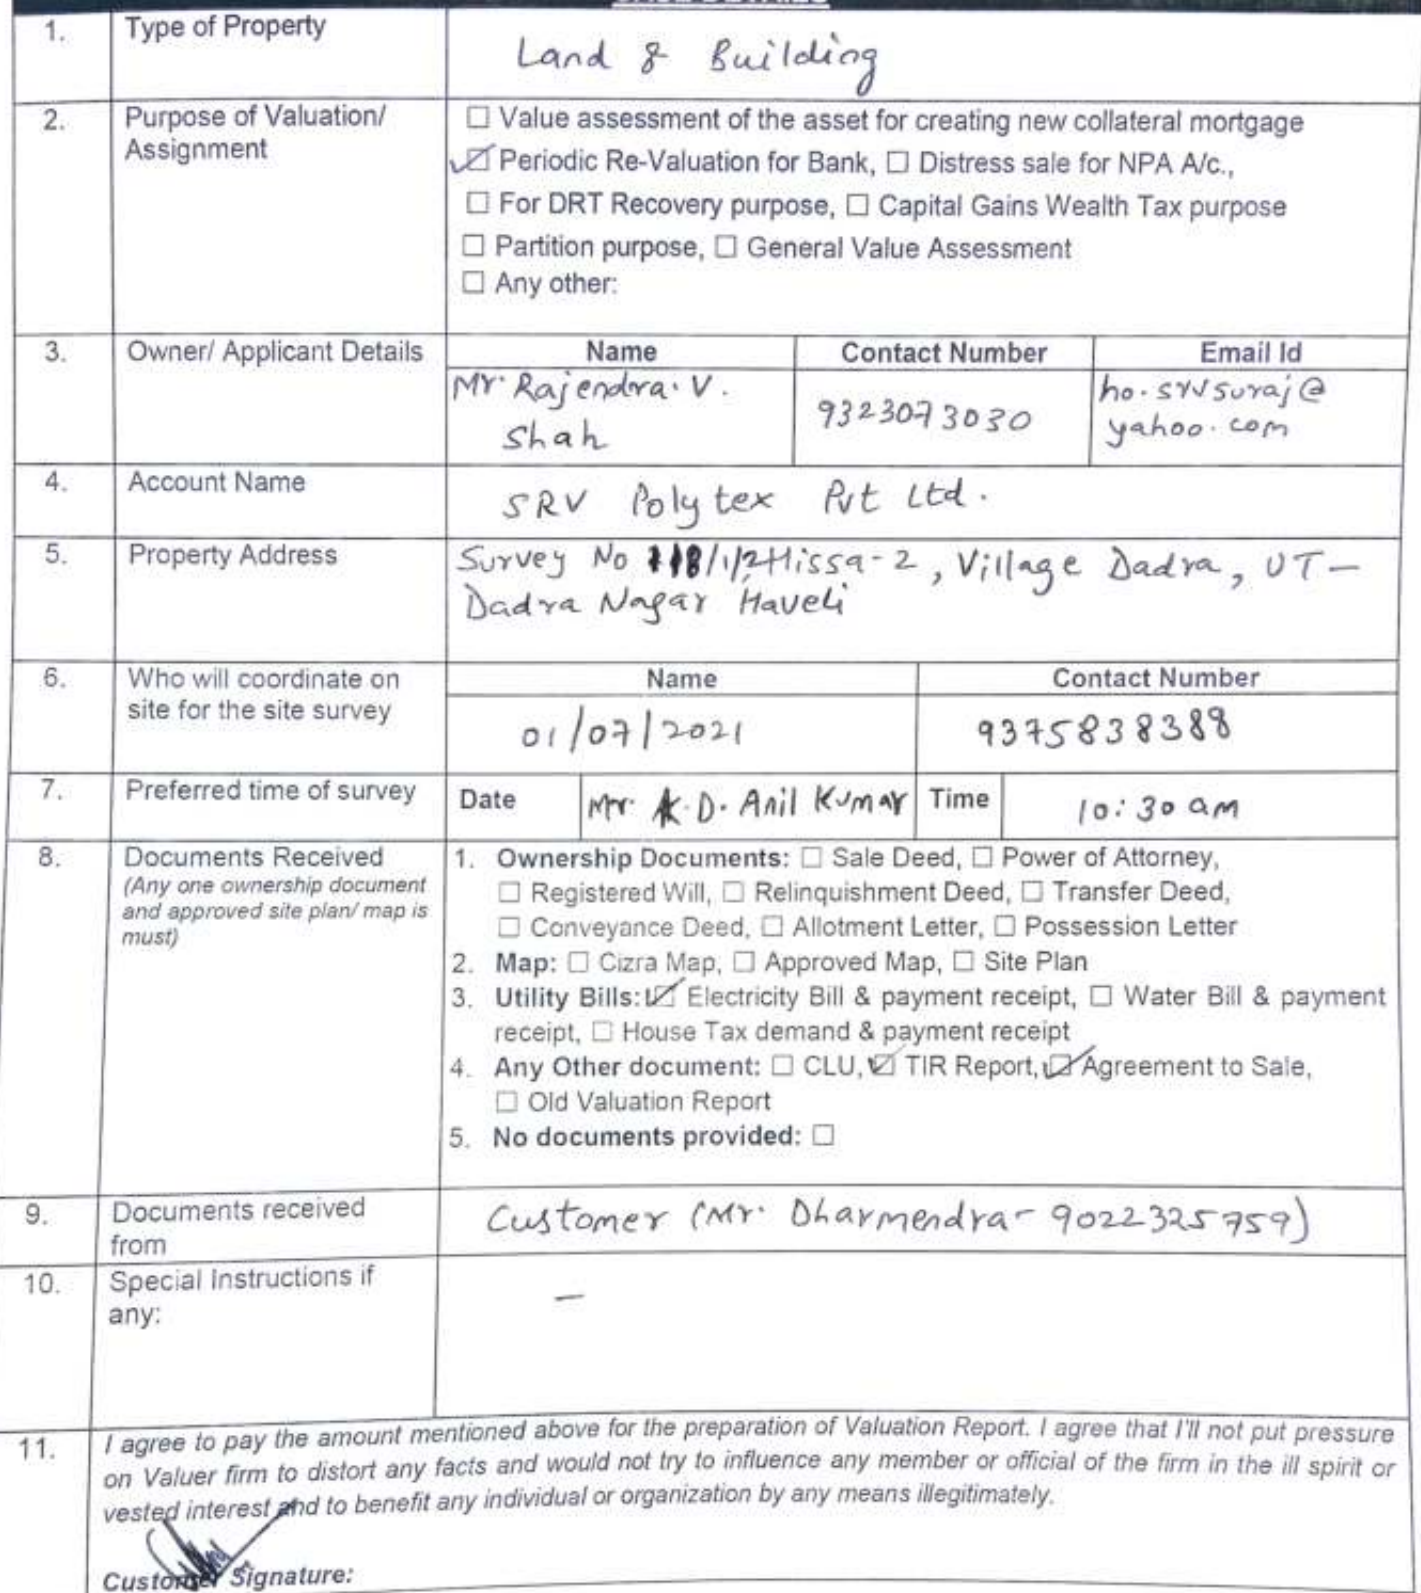 1. Type of Property Land & Building
2. Purpose of Valuation/ Assignment
☐ Value assessment of the asset for creating new collateral mortgage
☑ Periodic Re-Valuation for Bank, ☐ Distress sale for NPA A/c.,
☐ For DRT Recovery purpose, ☐ Capital Gains Wealth Tax purpose
☐ Partition purpose, ☐ General Value Assessment
☐ Any other:
3. Owner/ Applicant Details
Name Contact Number Email Id
Mr. Rajendra. V. Shah 9323073030 ho.srvsuraj@yahoo.com
4. Account Name SRV Polytex Pvt Ltd.
5. Property Address
Survey No 118/1/2 Hissa-2, Village Dadra, UT-
Dadra Nagar Haveli
6. Who will coordinate on site for the site survey
Name Contact Number
01/07/2021 9375838388
7. Preferred time of survey Date Mr. K.D. Anil Kumar Time 10:30 am
8. Documents Received
(Any one ownership document
and approved site plan/ map is
must)
1. Ownership Documents: ☐ Sale Deed, ☐ Power of Attorney,
☐ Registered Will, ☐ Relinquishment Deed, ☐ Transfer Deed,
☐ Conveyance Deed, ☐ Allotment Letter, ☐ Possession Letter
2. Map: ☐ Cizra Map, ☐ Approved Map, ☐ Site Plan
3. Utility Bills: ☑ Electricity Bill & payment receipt, ☐ Water Bill & payment
receipt, ☐ House Tax demand & payment receipt
4. Any Other document: ☐ CLU, ☑ TIR Report, ☑ Agreement to Sale,
☐ Old Valuation Report
5. No documents provided: ☐
9. Documents received from Customer (Mr. Dharmendra- 9022325759)
10. Special Instructions if any: -
11. I agree to pay the amount mentioned above for the preparation of Valuation Report. I agree that I'll not put pressure
on Valuer firm to distort any facts and would not try to influence any member or official of the firm in the ill spirit or
vested interest and to benefit any individual or organization by any means illegitimately.
Customer Signature: